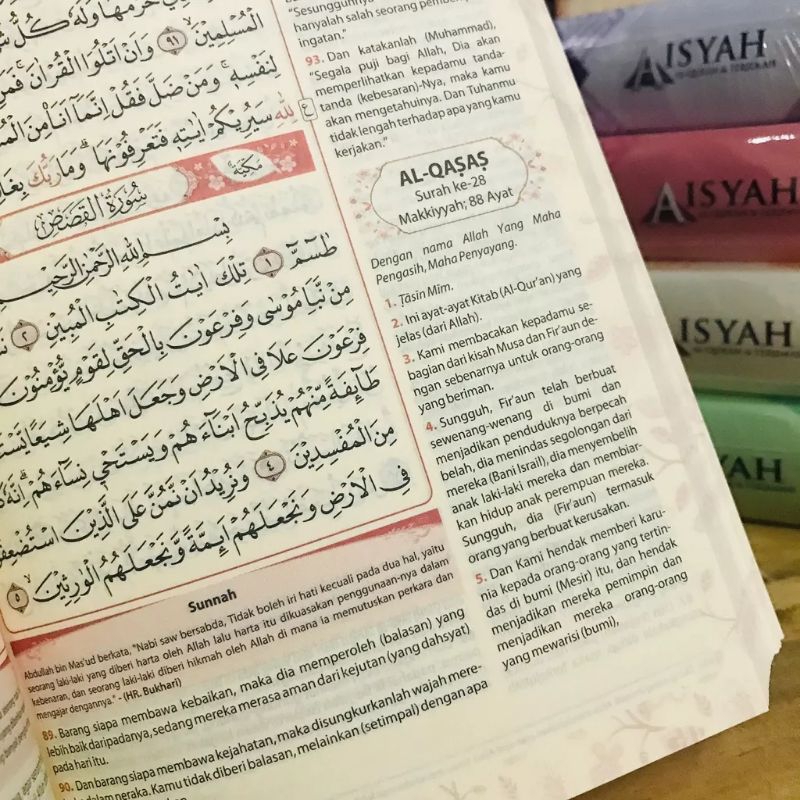 الْمُسْلِمِيْنَ ٩١ وَاَنْ اَتْلُوَا الْقُرْاٰنَ
لِنَفْسِهٖ وَمَنْ ضَلَّ فَقُلْ اِنَّمَآ اَنَا۠ مِنَ
لِلّٰهِ سَيُرِيْكُمْ اٰيٰتِهٖ فَتَعْرِفُوْنَهَا وَمَا رَبُّكَ
ع
مَكِّيَّة
سُوْرَةُ الْقَصَصِ
بِسْمِ اللّٰهِ الرَّحْمٰنِ الرَّحِيْمِ
طٰسۤمّۤ ١ تِلْكَ اٰيٰتُ الْكِتٰبِ الْمُبِيْنِ ٢
مِنْ نَّبَاِ مُوْسٰى وَفِرْعَوْنَ بِالْحَقِّ لِقَوْمٍ يُّؤْمِنُوْنَ
فِرْعَوْنَ عَلَا فِى الْاَرْضِ وَجَعَلَ اَهْلَهَا شِيَعًا
طَاۤىِٕفَةً مِّنْهُمْ يُذَبِّحُ اَبْنَاۤءَهُمْ وَيَسْتَحْيٖ نِسَاۤءَهُمْ
مِنَ الْمُفْسِدِيْنَ ٤ وَنُرِيْدُ اَنْ نَّمُنَّ عَلَى الَّذِيْنَ
فِى الْاَرْضِ وَنَجْعَلَهُمْ اَىِٕمَّةً وَّنَجْعَلَهُمُ الْوٰرِثِيْنَ ٥
Sunnah
Abdullah bin Mas'ud berkata, "Nabi saw bersabda, Tidak boleh iri hati kecuali pada dua hal, yaitu
seorang laki-laki yang diberi harta oleh Allah lalu harta itu dikuasakan penggunaan-nya dalam
kebenaran, dan seorang laki-laki diberi hikmah oleh Allah di mana Ia memutuskan perkara dan
mengajar dengannya." - (HR. Bukhari)
89. Barang siapa membawa kebaikan, maka dia memperoleh (balasan) yang
lebih baik daripadanya, sedang mereka merasa aman dari kejutan (yang dahsyat)
pada hari itu.
90. Dan barang siapa membawa kejahatan, maka disungkurkanlah wajah mere-
dalam neraka. Kamu tidak diberi balasan, melainkan (setimpal) dengan apa
"Sesungguhnya
hanyalah salah seorang
ingatan."
93. Dan katakanlah (Muhammad),
"Segala puji bagi Allah, Dia akan
memperlihatkan kepadamu tanda-
tanda (kebesaran)-Nya, maka kamu
akan mengetahuinya. Dan Tuhanmu
tidak lengah terhadap apa yang kamu
kerjakan."
AL-QAṢAṢ
Surah ke-28
Makkiyyah; 88 Ayat
Dengan nama Allah Yang Maha
Pengasih, Maha Penyayang.
1. Ṭāsīn Mīm.
2. Ini ayat-ayat Kitab (Al-Qur'an) yang
jelas (dari Allah).
3. Kami membacakan kepadamu se-
bagian dari kisah Musa dan Fir'aun de-
ngan sebenarnya untuk orang-orang
yang beriman.
4. Sungguh, Fir'aun telah berbuat
sewenang-wenang di bumi dan
menjadikan penduduknya berpecah
belah, dia menindas segolongan dari
mereka (Bani Israil), dia menyembelih
anak laki-laki mereka dan membiar-
kan hidup anak perempuan mereka.
Sungguh, dia (Fir'aun) termasuk
orang yang berbuat kerusakan.
5. Dan Kami hendak memberi karu-
nia kepada orang-orang yang tertin-
das di bumi (Mesir) itu, dan hendak
menjadikan mereka pemimpin dan
menjadikan mereka orang-orang
yang mewarisi (bumi),
AISYAH
AISYAH
AISYAH
YAH